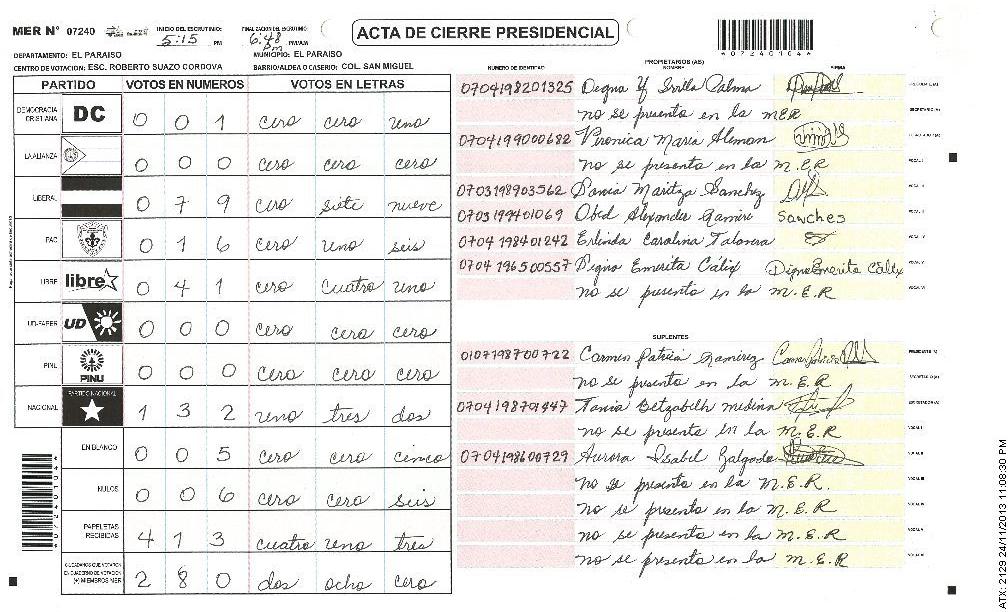 MER N° 07240 INICIO DEL ESCRUTINIO: 5:15 PM FINALIZACION DEL ESCRUTINIO: 6:48 PM PM/AM
ACTA DE CIERRE PRESIDENCIAL
*072401014*
DEPARTAMENTO: EL PARAISO MUNICIPIO: EL PARAISO
CENTRO DE VOTACION: ESC. ROBERTO SUAZO CORDOVA BARRIO/ALDEA O CASERIO: COL. SAN MIGUEL
PARTIDO VOTOS EN NUMEROS VOTOS EN LETRAS
DEMOCRACIA CRISTIANA DC 0 0 1 cero cero uno
LA ALIANZA 0 0 0 cero cero cero
LIBERAL 0 7 9 cero siete nueve
PAC 0 1 6 cero uno seis
LIBRE libre 0 4 1 cero cuatro uno
UD-FAPER UD 0 0 0 cero cero cero
PINU PINU 0 0 0 cero cero cero
NACIONAL PARTIDO NACIONAL 1 3 2 uno tres dos
EN BLANCO 0 0 5 cero cero cinco
NULOS 0 0 6 cero cero seis
PAPELETAS RECIBIDAS 4 1 3 cuatro uno tres
CIUDADANOS QUE VOTARON EN CUADERNO DE VOTACION (+) MIEMBROS MER 2 8 0 dos ocho cero
PROPIETARIOS (AS)
NUMERO DE IDENTIDAD NOMBRE FIRMA
0704198201325 Digna Y Palma PRESIDENTE (A)
no se presento en la MER SECRETARIO (A)
0704199000682 Veronica Maria Aleman ESCRUTADOR (A)
no se presenta en la M.E.R VOCAL I
0703198903562 Maritza Sanchez VOCAL II
0703199401069 Obed Alexander Ramire Sanches VOCAL III
0704198401242 Erlinda Carolina Talavera VOCAL IV
0704196500557 Digna Emerita Cálix Digna Emerita Cálix VOCAL V
no se presento en la M.E.R VOCAL VI
SUPLENTES
0107198700722 Carmen Patricia Ramirez PRESIDENTE (A)
no se presento en la M.E.R SECRETARIO (A)
0704198701447 Tania Betzabelh medina ESCRUTADOR (A)
no se presento en la M.E.R VOCAL I
0704198600729 Aurora Isabel Galgado VOCAL II
no se presento en la M.E.R VOCAL III
no se presento en la M.E.R VOCAL IV
no se presento en la M.E.R VOCAL V
no se presento en la M.E.R VOCAL VI
ATX: 2129 24/11/2013 11:08:30 PM